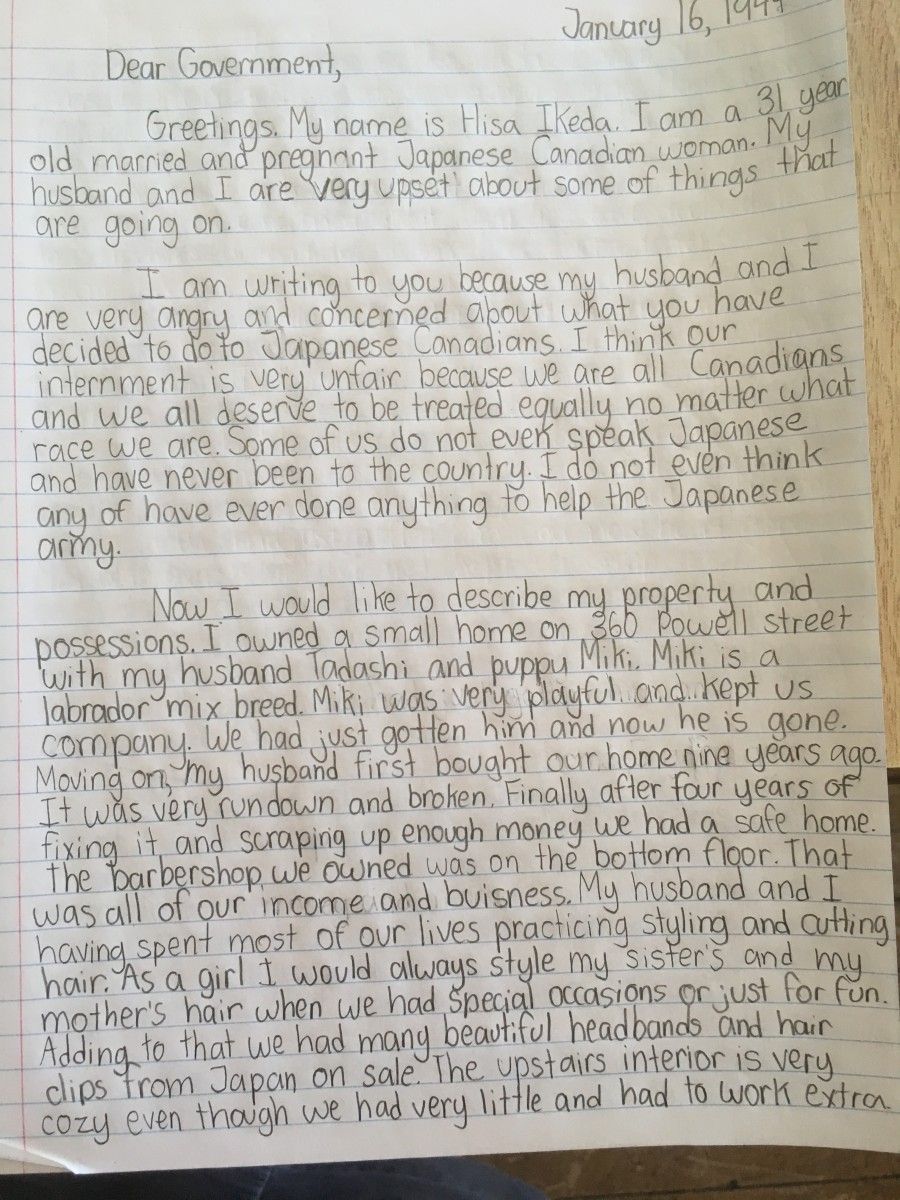 January 16, 194
Dear Government,
Greetings. My name is Hisa Ikeda. I am a 31 year
old married and pregnant Japanese Canadian woman. My
husband and I are very upset about some of things that
are going on.
I am writing to you because my husband and I
are very angry and concerned about what you have
decided to do to Japanese Canadians. I think our
internment is very unfair because we are all Canadians
and we all deserve to be treated equally no matter what
race we are. Some of us do not even speak Japanese
and have never been to the country. I do not even think
any of have ever done anything to help the Japanese
army.
Now I would like to describe my property and
possessions. I owned a small home on 360 Powell street
with my husband Tadashi and puppy Miki. Miki is a
labrador mix breed. Miki was very playful and kept us
company. We had just gotten him and now he is gone.
Moving on, my husband first bought our home nine years ago.
It was very rundown and broken. Finally after four years of
fixing it and scraping up enough money we had a safe home.
The barbershop we owned was on the bottom floor. That
was all of our income and buisness. My husband and I
having spent most of our lives practicing styling and cutting
hair. As a girl I would always style my sister's and my
mother's hair when we had special occasions or just for fun.
Adding to that we had many beautiful headbands and hair
clips from Japan on sale. The upstairs interior is very
cozy even though we had very little and had to work extra